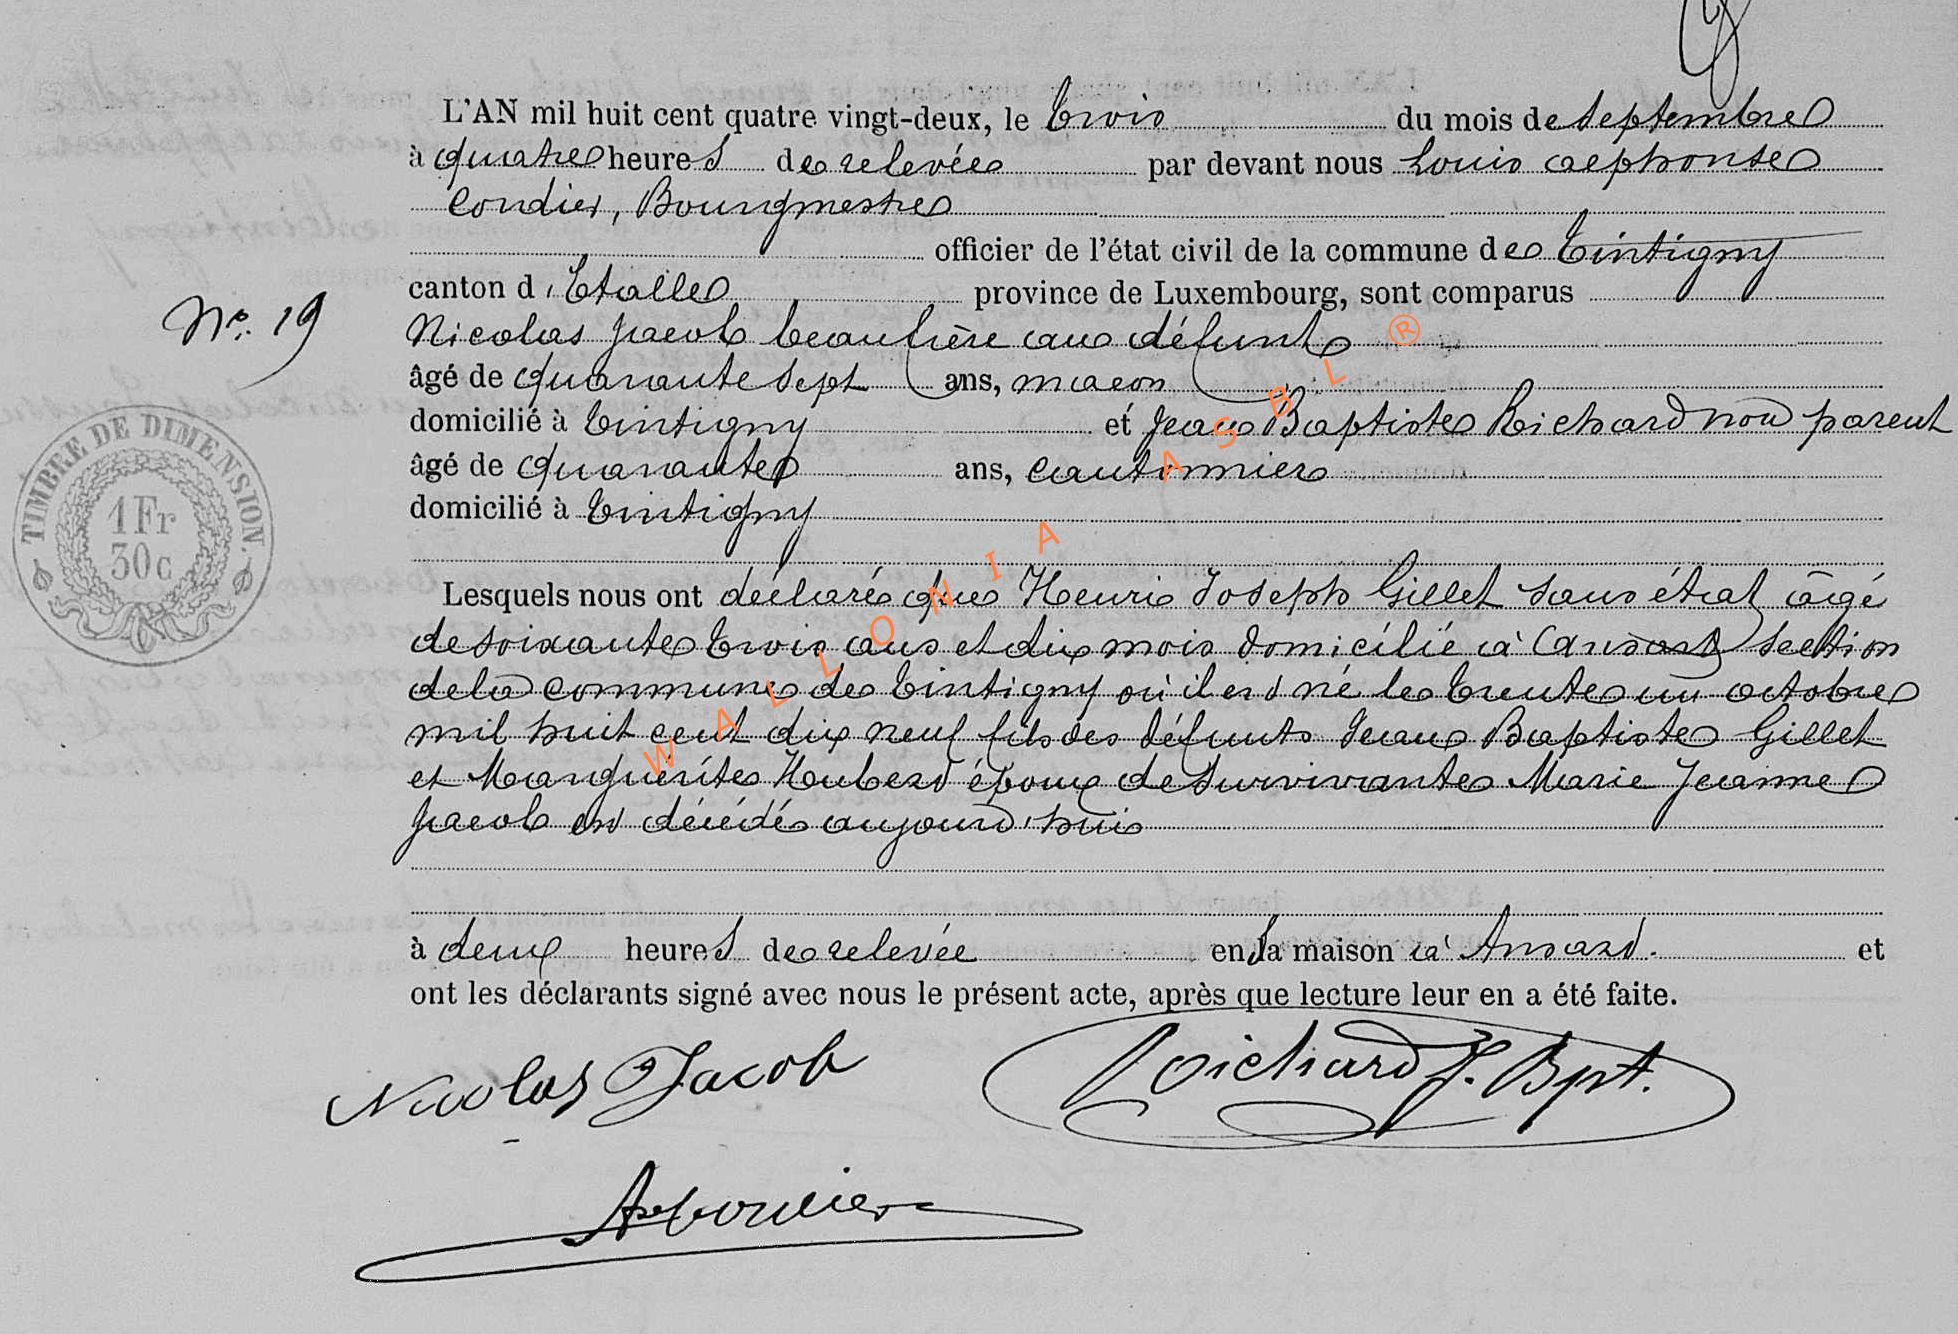 L'AN mil huit cent quatre vingt-deux, le trois du mois de septembre
à quatre heures de relevée par devant nous Louis Alphonse
Cordier, Bourgmestre
officier de l'état civil de la commune de Tintigny
canton d'Etalle province de Luxembourg, sont comparus
No. 19
Nicolas Jacob beaufrère au défunt
âgé de quarante sept ans, maçon
domicilié à Tintigny et Jean Baptiste Richard non parent
âgé de quarante ans, cantonnier
domicilié à Tintigny
TIMBRE DE DIMENSION.
1 Fr
30 c
Lesquels nous ont déclaré que Henri Joseph Gillet sans état âgé
de soixante trois ans et dix mois domicilié à Ansart section
de la commune de Tintigny où il est né le trente un octobre
mil huit cent dix neuf fils des défunts Jean Baptiste Gillet
et Marguerite Hubert époux de survivante Marie Jeanne
Jacob est décédé aujourd'hui
à deux heures de relevée en sa maison à Ansart. et
ont les déclarants signé avec nous le présent acte, après que lecture leur en a été faite.
Nicolas Jacob Richard J. Bpt.
WALLONIA ASBL ®